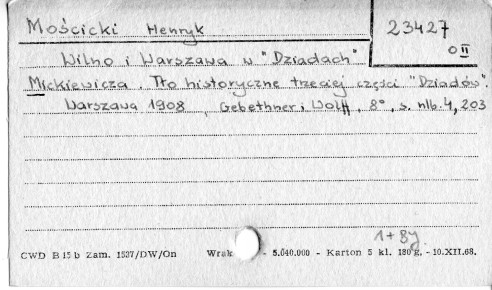 Mościcki Henryk
23427
O II
Wilno i Warszawa w "Dziadach"
Mickiewicza. Tło historyczne trzeciej części "Dziadów".
Warszawa 1908, Gebethner i Wolff, 8°, s. nlb. 4, 203
1+8y.
CWD B 15 b Zam. 1537/DW/On Wrak - 5.040.000 - Karton 5 kl. 180 g. - 10.XII.68.